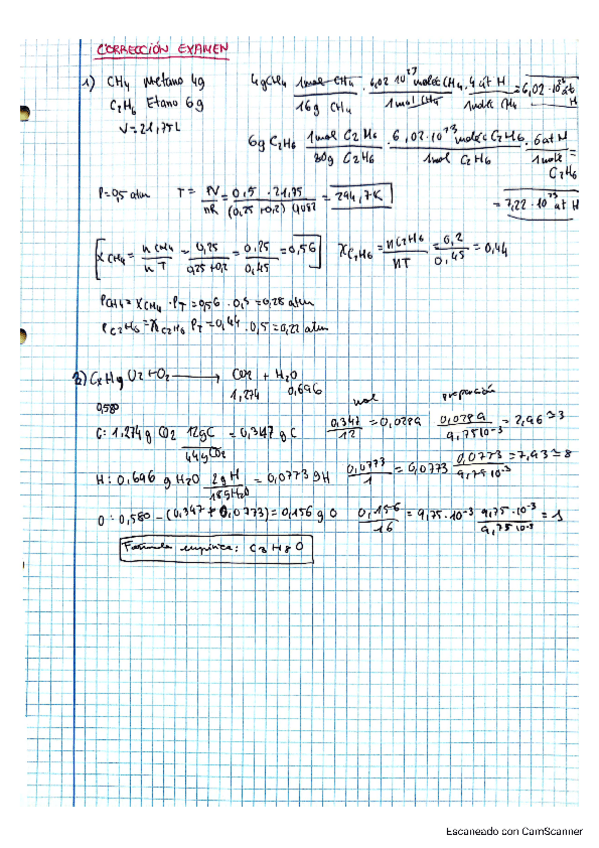 CORRECCIÓN EXAMEN
1) CH4 Metano 4g
C2H6 Etano 6g
V=21,75L
4gCH4 · 1mol CH4 / 16g CH4 · 6,02·10^23 moléc CH4 / 1mol CH4 · 4 at H / 1moléc CH4 = 6,02·10^23 at H
6g C2H6 · 1mol C2H6 / 30g C2H6 · 6,02·10^23 moléc C2H6 / 1mol C2H6 · 6 at H / 1moléc C2H6 = 7,22·10^23 at H
P=0,5 atm T = PV / nR = 0,5 · 21,75 / (0,25+0,2) 0,082 = 294,7K
XCH4 = nCH4 / nT = 0,25 / 0,25+0,2 = 0,25 / 0,45 = 0,56
XC2H6 = nC2H6 / nT = 0,2 / 0,45 = 0,44
PCH4 = XCH4 · PT = 0,56 · 0,5 = 0,28 atm
PC2H6 = XC2H6 PT = 0,44 · 0,5 = 0,22 atm
2) CxHyOz + O2 → CO2 + H2O
0,580 1,274 0,696
mol proporción
C: 1,274g CO2 12gC / 44gCO2 = 0,347 g C 0,347 / 12 = 0,0289 0,0289 / 9,75·10^-3 = 2,96≃3
H: 0,696 g H2O 2gH / 18gH2O = 0,0773 gH 0,0773 / 1 = 0,0773 0,0773 / 9,75·10^-3 = 7,93≃8
O: 0,580 - (0,347 + 0,0773) = 0,156 g O 0,156 / 16 = 9,75·10^-3 9,75·10^-3 / 9,75·10^-3 = 1
Fórmula empírica: C3H8O
Escaneado con CamScanner